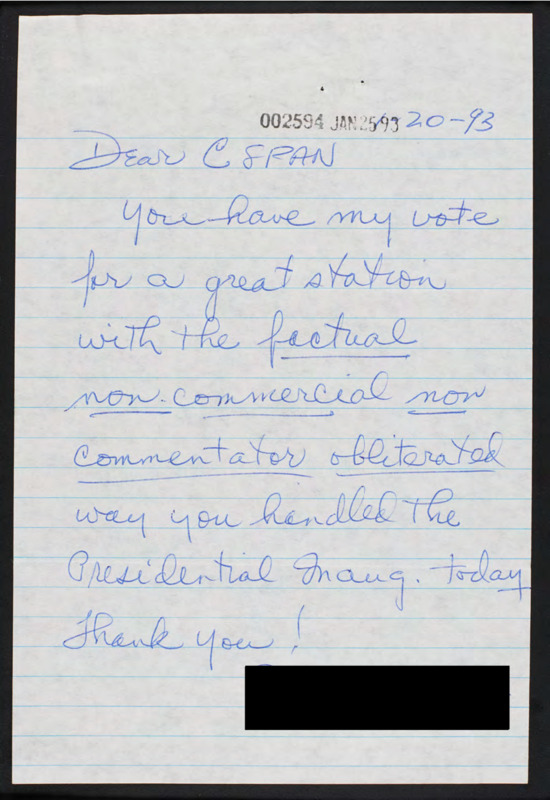 002594 JAN 25 93 1-20-93
Dear C SPAN
You have my vote
for a great station
with the factual
non-commercial non
commentator obliterated
way you handled the
Presidential Inaug. today
Thank you!